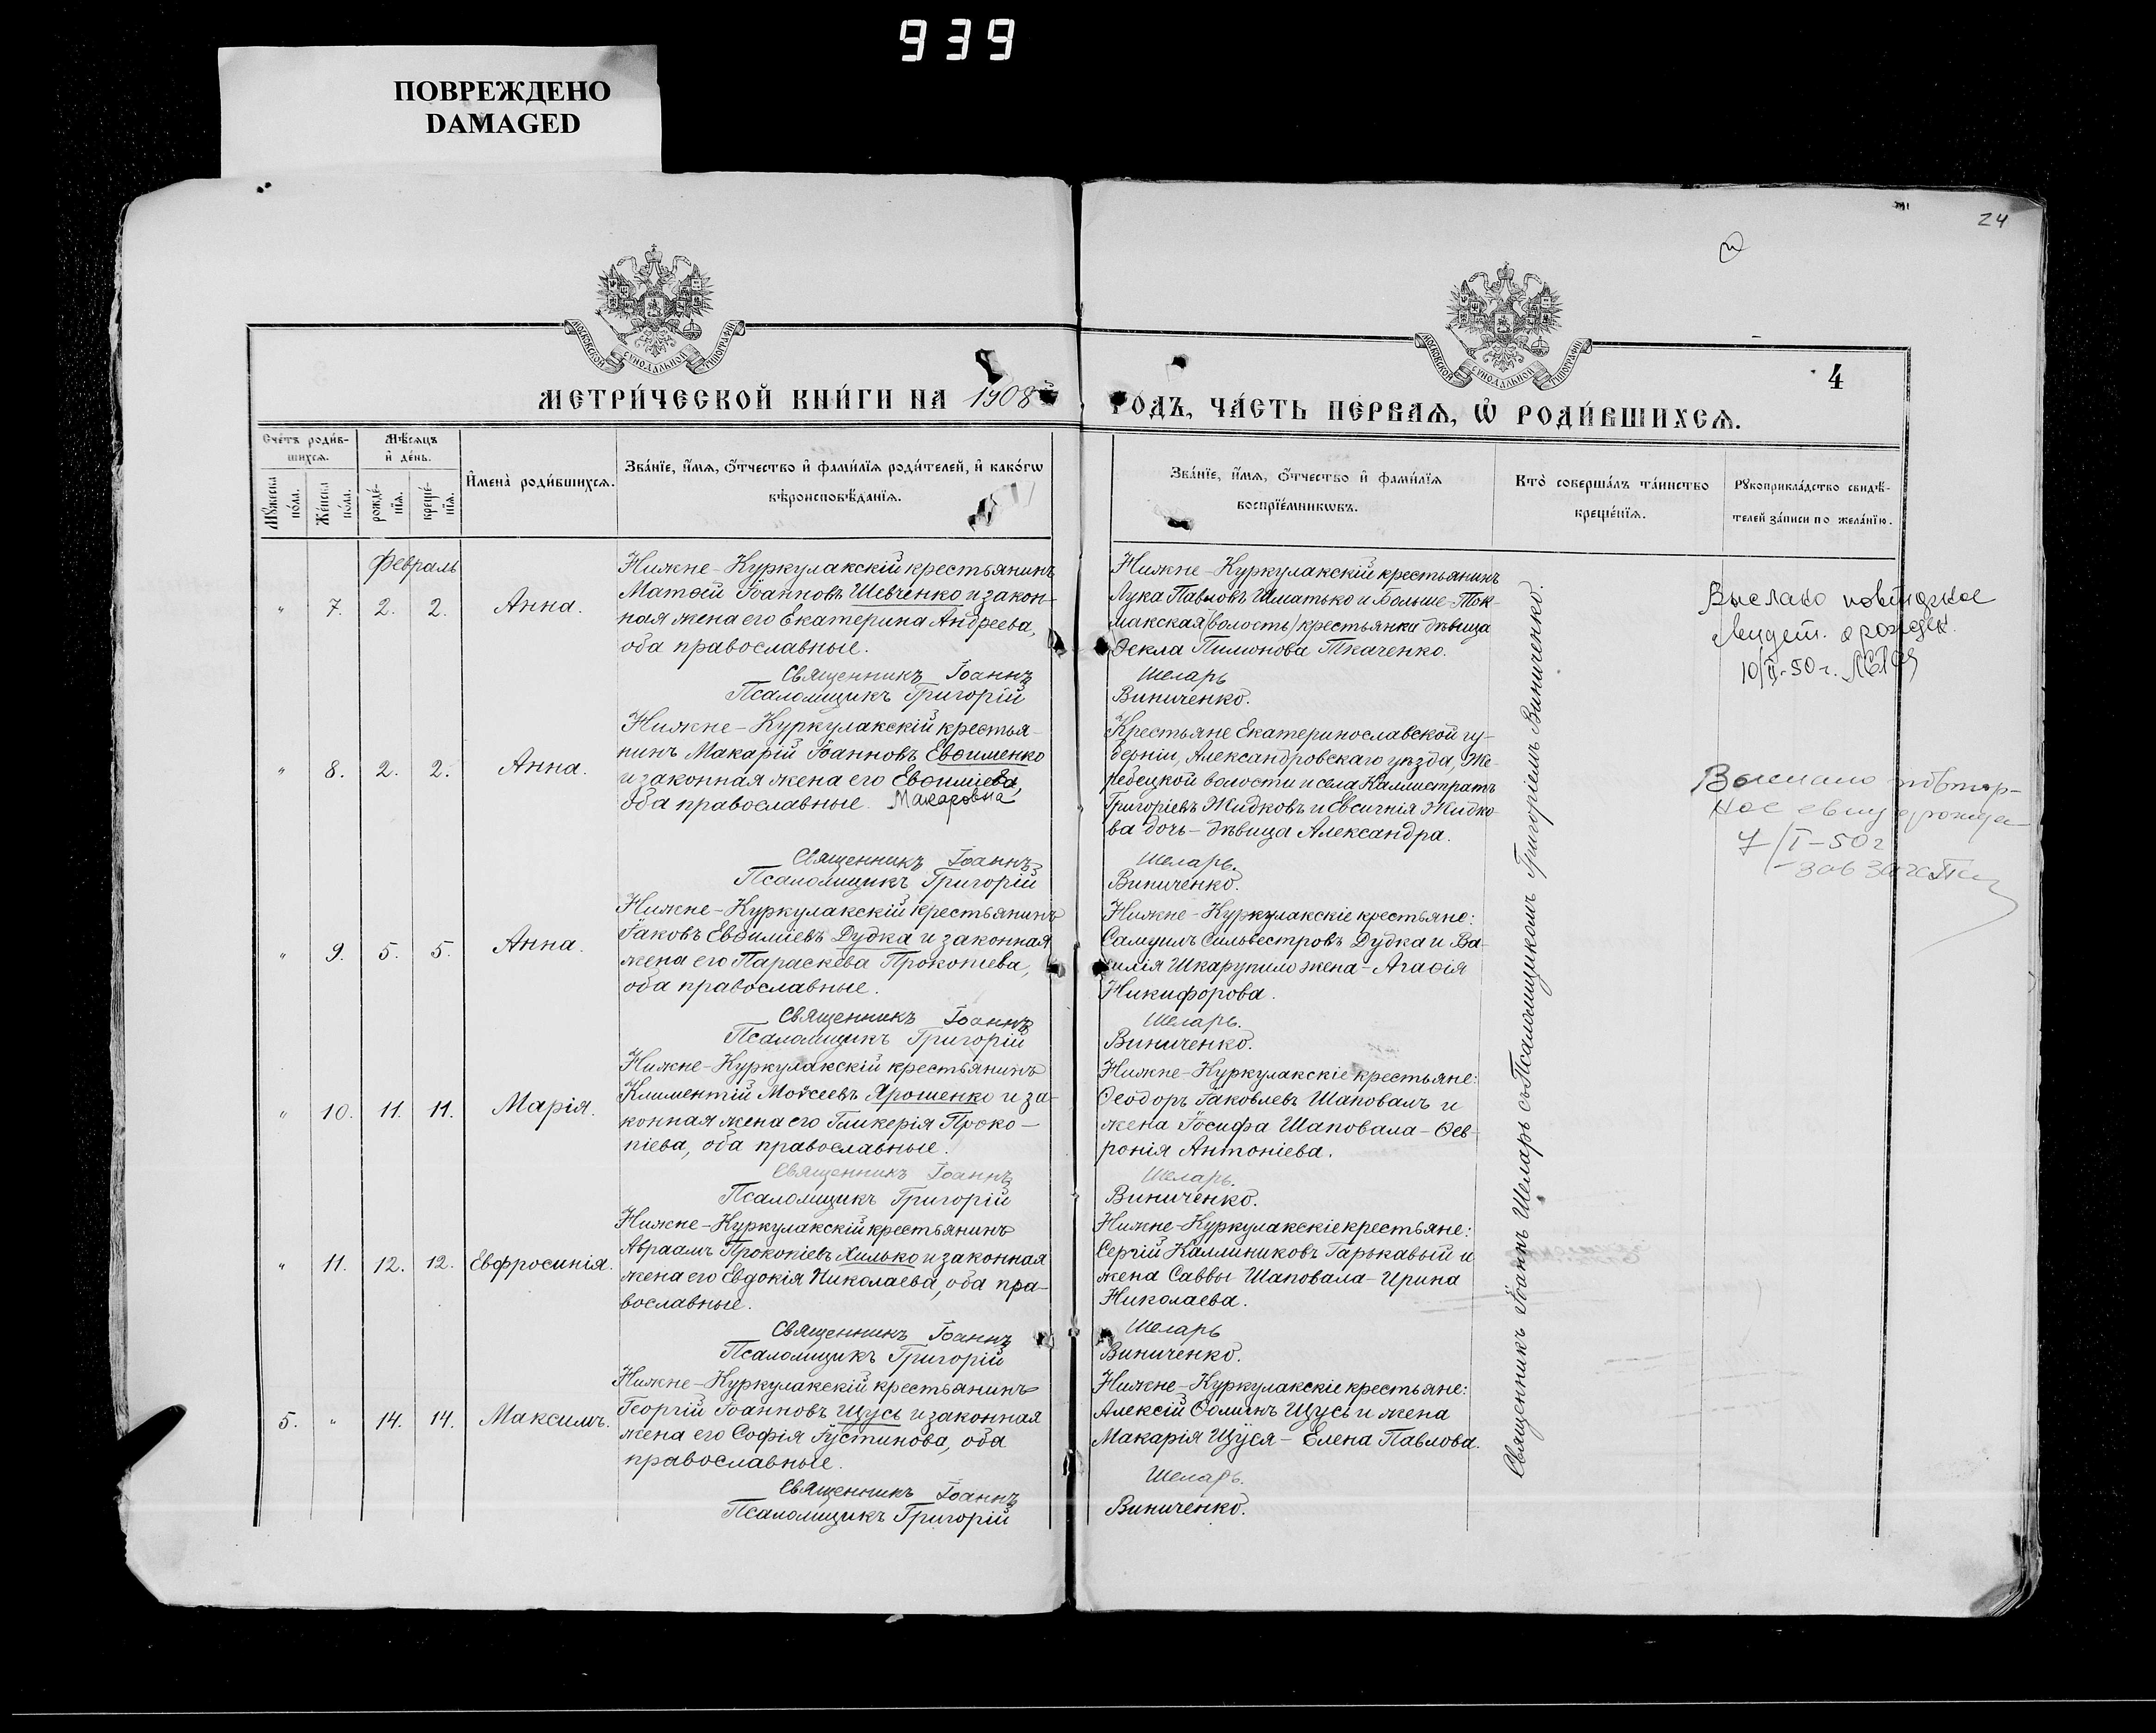 939
ПОВРЕЖДЕНО
DAMAGED
24
4
МОСКОВСКОЙ СУНОДАЛЬНОЙ ТИПОГРАФІИ
МОСКОВСКОЙ СУНОДАЛЬНОЙ ТИПОГРАФІИ
МЕТРИ́ЧЕСКОЙ КНИ́ГИ НА 1908й
ГОДЪ, ЧА́СТЬ ПЕ́РВАѦ, Ѡ҆ РОДИ́ВШИХСѦ.
Сче́тъ роди́в-
шихсѧ.
Мѣ́сѧцъ
и҆ де́нь.
Мꙋ́жеска по́ла.
Же́нска по́ла.
рожде́-
нїѧ.
креще́-
нїѧ.
И҆мена̀ роди́вшихсѧ.
Зва́нїе, и҆́мѧ, ѻ҆́тчество и҆ фами́лїѧ роди́телей, и҆ како́гѡ
вѣроисповѣ́данїѧ.
Зва́нїе, и҆́мѧ, ѻ҆́тчество и҆ фами́лїѧ
воспрїе́мникѡвъ.
Кто̀ соверша́лъ та́инство
креще́нїѧ.
Рꙋкоприкла́дство свидѣ́-
телей за́писи по жела́нїю.
Февраль
" 7. 2. 2. Анна.
Нижне-Куркулакскій крестьянинъ
Матѳей Іоанновъ Шевченко и закон-
ная жена его Екатерина Андреева,
оба православные.
Священникъ Іоаннъ
Псаломщикъ Григорій
Нижне-Куркулакскій крестьянинъ
Лука Павловъ Шматько и Больше-Ток-
макская (волость) крестьянка дѣвица
Ѳекла Пимонова Ткаченко.
Шеларь
Виниченко.
10/II-50г.
" 8. 2. 2. Анна.
Нижне-Куркулакскій крестья-
нинъ Макарій Іоанновъ Евѳименко
и законная жена его Евѳиміева,
оба православные. Макаровна
Священникъ Іоаннъ
Псаломщикъ Григорій
Крестьяне Екатеринославской гу-
берніи, Александровскаго уѣзда, Же-
ребецкой волости и села Каллистратъ
Григоріевъ Жидковъ и Евсигнія Жидко-
ва дочь - дѣвица Александра.
Шеларь.
Виниченко.
7/I-50г
" 9. 5. 5. Анна.
Нижне-Куркулакскій крестьянинъ
Іаковъ Евѳиміевъ Дудка и законная
жена его Параскева Прокопіева,
оба православные.
Священникъ Іоаннъ
Псаломщикъ Григорій
Нижне-Куркулакскіе крестьяне:
Самуилъ Сильвестровъ Дудка и Ва-
силія Шкарупило жена - Агаѳія
Никифорова.
Шеларь.
Виниченко.
" 10. 11. 11. Марія.
Нижне-Куркулакскій крестьянинъ
Климентій Моѵсеевъ Ярошенко и за-
конная жена его Гликерія Проко-
піева, оба православные.
Священникъ Іоаннъ
Псаломщикъ Григорій
Нижне-Куркулакскіе крестьяне:
Ѳеодоръ Іаковлевъ Шаповалъ и
жена Іосифа Шаповала - Ѳев-
ронія Антоніева.
Шеларь.
Виниченко.
" 11. 12. 12. Евфросинія.
Нижне-Куркулакскій крестьянинъ
Авраамъ Прокопіевъ Хилько и законная
жена его Евдокія Николаева, оба пра-
вославные.
Священникъ Іоаннъ
Псаломщикъ Григорій
Нижне-Куркулакскіе крестьяне:
Сергій Каллиниковъ Гарькавый и
жена Саввы Шаповала - Ирина
Николаева.
Шеларь
Виниченко.
5. " 14. 14. Максимъ.
Нижне-Куркулакскій крестьянинъ
Георгій Іоанновъ Щусь и законная
жена его Софія Іустинова, оба
православные.
Священникъ Іоаннъ
Псаломщикъ Григорій
Нижне-Куркулакскіе крестьяне:
Алексій Ѳоминъ Щусь и жена
Макарія Щуся - Елена Павлова.
Шеларь.
Виниченко.
Священникъ Іоаннъ Шеларь съ Псаломщикомъ Григоріемъ Виниченко.